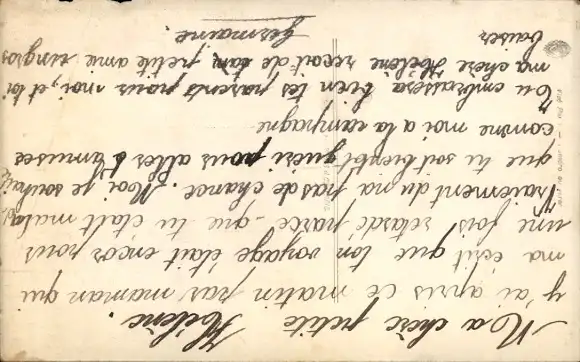 Ma chère petite Hélène.
J'ai apris ce matin par maman qui
ma ecrit que ton voyage était encor pour
une fois retardé parce-que tu était malade
Vraiement du na pas de chance. Moi je souhaite
que tu soit bientot guéri pour aller t'amuser
comme moi a la campagne
Tu embrassera bien tes parents pour moi, et toi
ma chère Hélène recoit de ton petite amie un gros
baiser
Germaine.